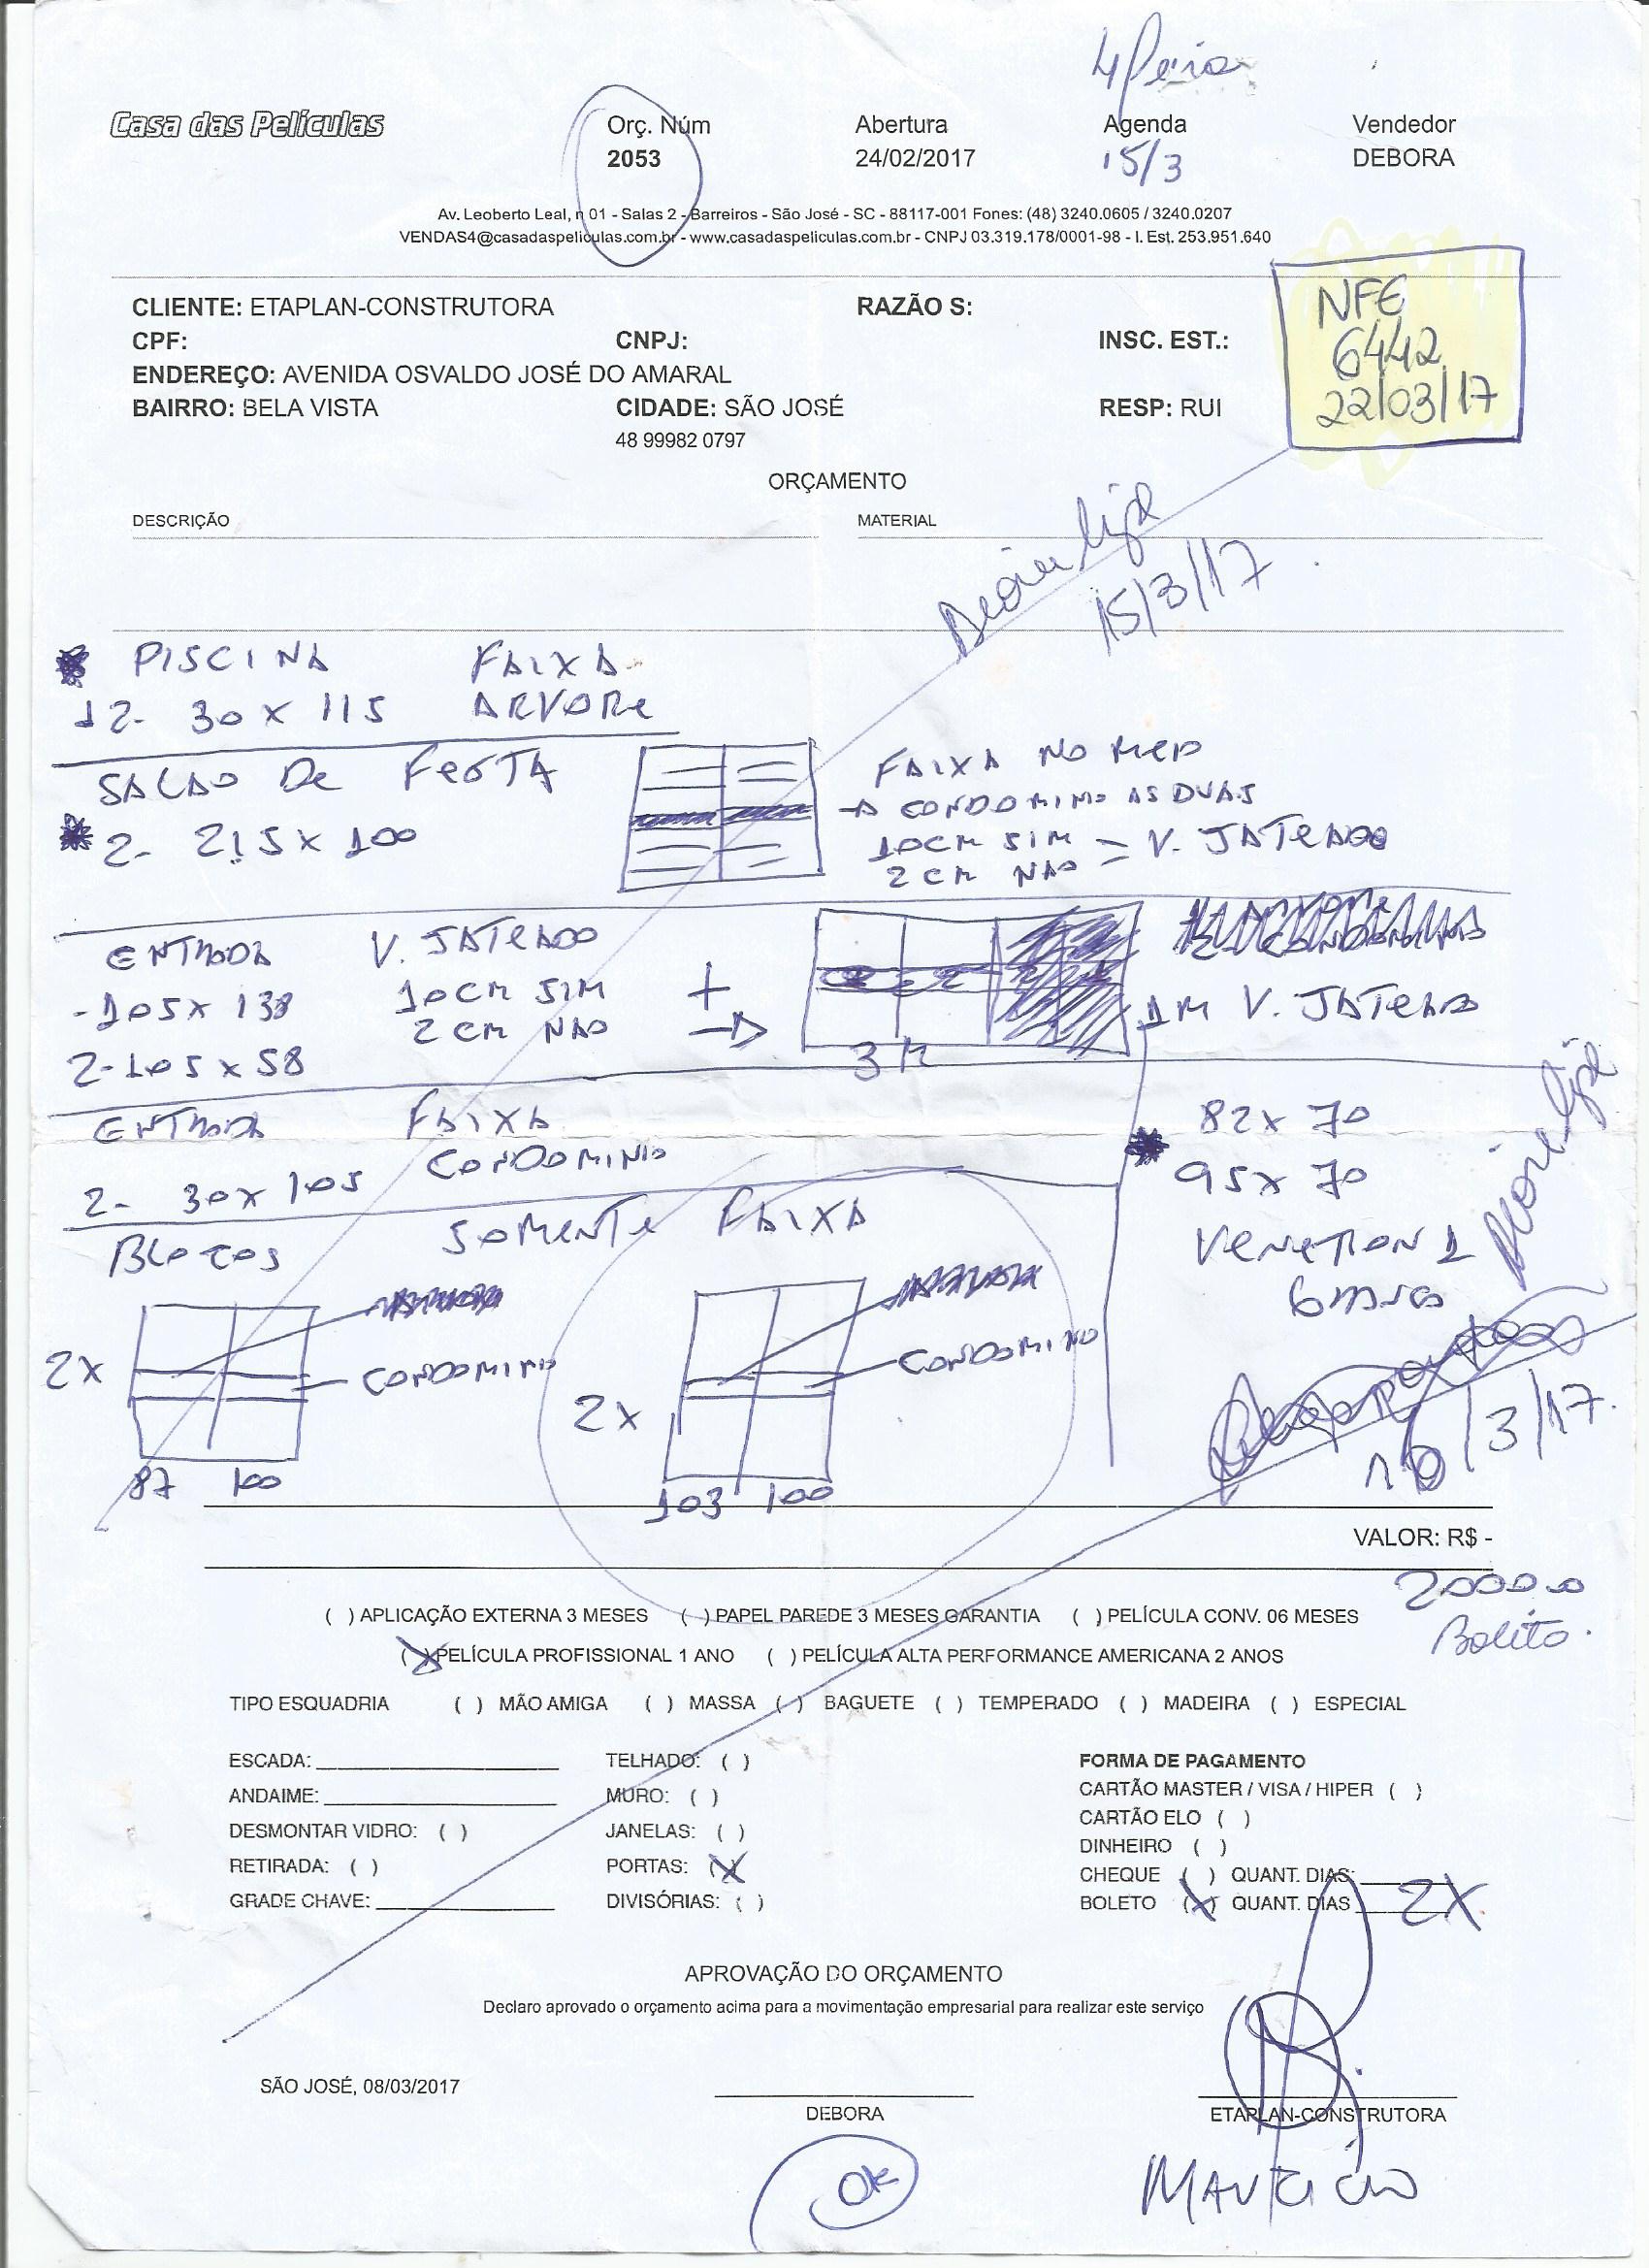 4ª feira
Casa das Películas
Orç. Núm Abertura Agenda Vendedor
2053 24/02/2017 15/3 DEBORA
Av. Leoberto Leal, n 01 - Salas 2 - Barreiros - São José - SC - 88117-001 Fones: (48) 3240.0605 / 3240.0207
VENDAS4@casadaspeliculas.com.br - www.casadaspeliculas.com.br - CNPJ 03.319.178/0001-98 - I. Est. 253.951.640
NFE
6442
22/03/17
CLIENTE: ETAPLAN-CONSTRUTORA RAZÃO S:
CPF: CNPJ: INSC. EST.:
ENDEREÇO: AVENIDA OSVALDO JOSÉ DO AMARAL
BAIRRO: BELA VISTA CIDADE: SÃO JOSÉ RESP: RUI
48 99982 0797
ORÇAMENTO
DESCRIÇÃO MATERIAL
15/3/17
PISCINA FAIXA
12- 30 x 115 ARVORE
SALAO DE FESTA
2- 215 x 100
FAIXA NO MEIO
CONDOMINIO AS DUAS
10CM SIM = V. JATEADO
2 CM NAO
ENTRADA V. JATEADO
-105 x 138 10CM SIM +
2 CM NAO
2-105 x 58
3M
1M V. JATEADO
ENTRADA FAIXA
2- 30 x 105 CONDOMINIO
82 x 70
95 x 70
BLOCOS SOMENTE FAIXA
2x CONDOMINIO
87 100
2x CONDOMINIO
103 100
16/3/17.
VALOR: R$ -
2000,00
Boleto.
( ) APLICAÇÃO EXTERNA 3 MESES ( ) PAPEL PAREDE 3 MESES GARANTIA ( ) PELÍCULA CONV. 06 MESES
(X) PELÍCULA PROFISSIONAL 1 ANO ( ) PELÍCULA ALTA PERFORMANCE AMERICANA 2 ANOS
TIPO ESQUADRIA ( ) MÃO AMIGA ( ) MASSA ( ) BAGUETE ( ) TEMPERADO ( ) MADEIRA ( ) ESPECIAL
ESCADA: TELHADO: ( ) FORMA DE PAGAMENTO
ANDAIME: MURO: ( ) CARTÃO MASTER / VISA / HIPER ( )
DESMONTAR VIDRO: ( ) JANELAS: ( ) CARTÃO ELO ( )
DINHEIRO ( )
RETIRADA: ( ) PORTAS: (X) CHEQUE ( ) QUANT. DIAS:
GRADE CHAVE: DIVISÓRIAS: ( ) BOLETO (X) QUANT. DIAS 2X
APROVAÇÃO DO ORÇAMENTO
Declaro aprovado o orçamento acima para a movimentação empresarial para realizar este serviço
SÃO JOSÉ, 08/03/2017
DEBORA ETAPLAN-CONSTRUTORA
OK
MAURICIO